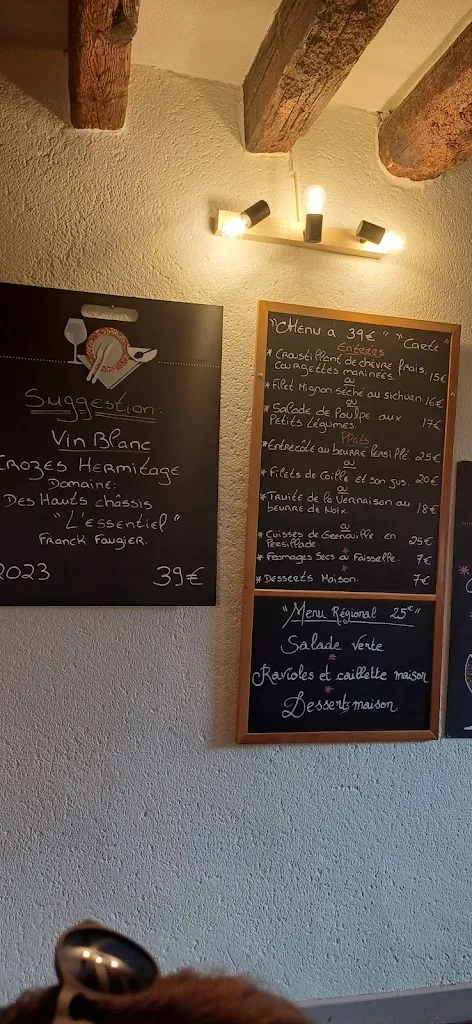 Suggestion:
Vin Blanc
Crozes Hermitage
Domaine:
Des Hauts châssis
"L'essentiel"
Franck Faugier.
2023 39€
"Menu à 39€" "Carte"
Entrées
* Croustillant de chèvre frais,
courgettes marinées. 15€
ou
* Filet Mignon séché au sichuan 16€
ou
* Salade de Poulpe aux
Petits légumes. 17€
Plats
* Entrecôte au beurre persillé. 25€
ou
* Filets de Caille et son jus. 20€
ou
* Truite de la Vernaison au
beurre de Noix. 18€
ou
* Cuisses de Grenouille en
Persillade. 25€
* Fromages Secs ou Faisselle. 7€
* Desserts Maison. 7€
"Menu Régional 25€"
Salade verte
*
Ravioles et caillette maison
*
Desserts maison